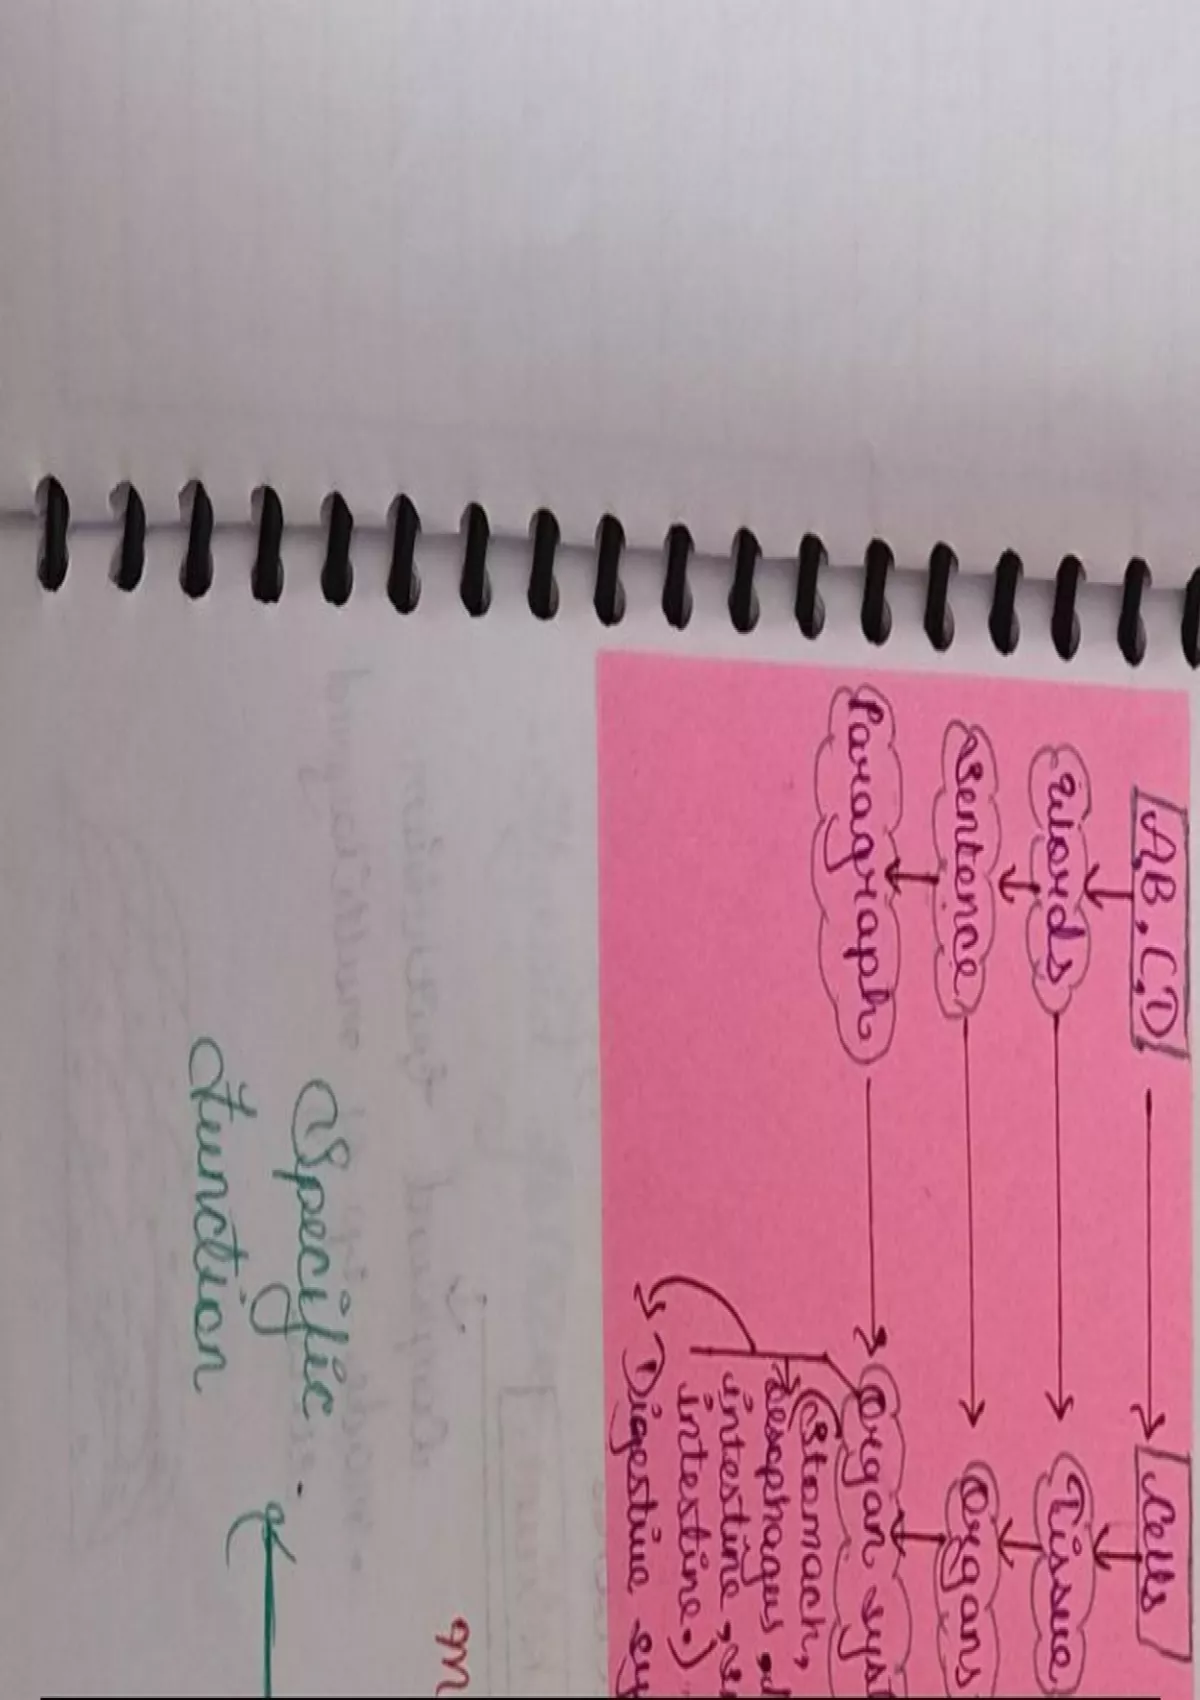 A,B,C,D → Cells
↓ ↓
Words → Tissue
↓ ↓
Sentence → Organs
↓ ↓
Paragraph → Organ syst
(Stomach,
oesophagus,
intestine,
intestine.)
→ Digestive sy
Specific
function